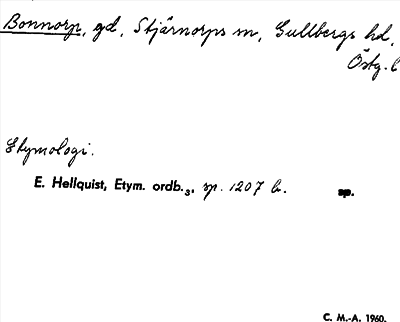 Bonnorp, gd, Stjärnorps sn, Gullbergs hd,
Östg. l
Etymologi.
E. Hellquist, Etym. ordb.3, sp. 1207 b. sp.
C. M.-A. 1960.